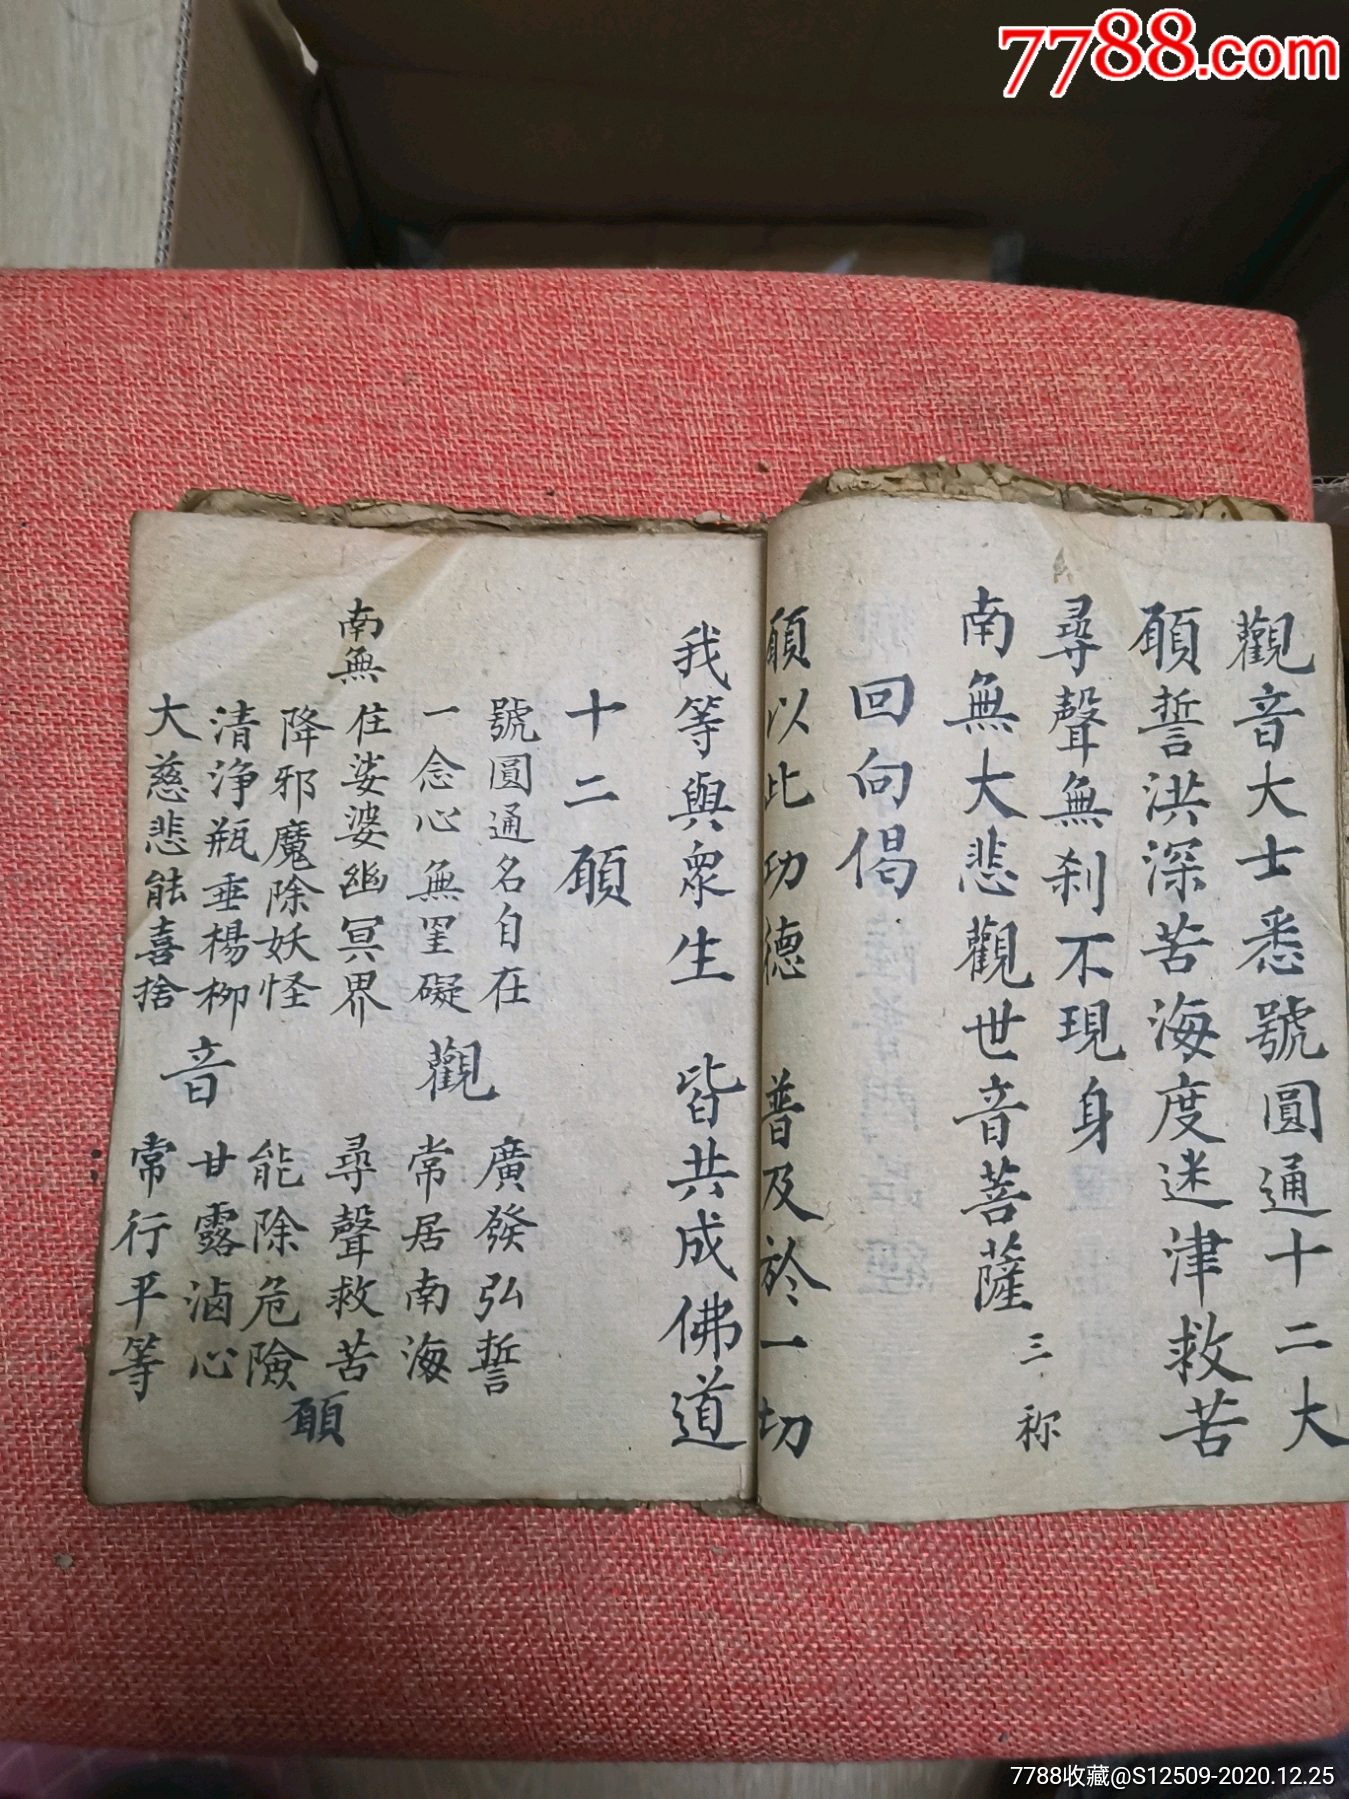 7788.com
觀音大士悉號圓通十二大
願誓洪深苦海度迷津救苦
尋聲無刹不現身
南無大悲觀世音菩薩 三称
回向偈
願以此功德 普及於一切
我等與眾生 皆共成佛道
十二願
號圓通名自在 廣發弘誓
一念心無罣礙 觀 常居南海
南無 住娑婆幽冥界 尋聲救苦
降邪魔除妖怪 能除危險 願
清浄瓶垂楊柳 音 甘露滷心
大慈悲能喜捨 常行平等
7788收藏@S12509-2020.12.25